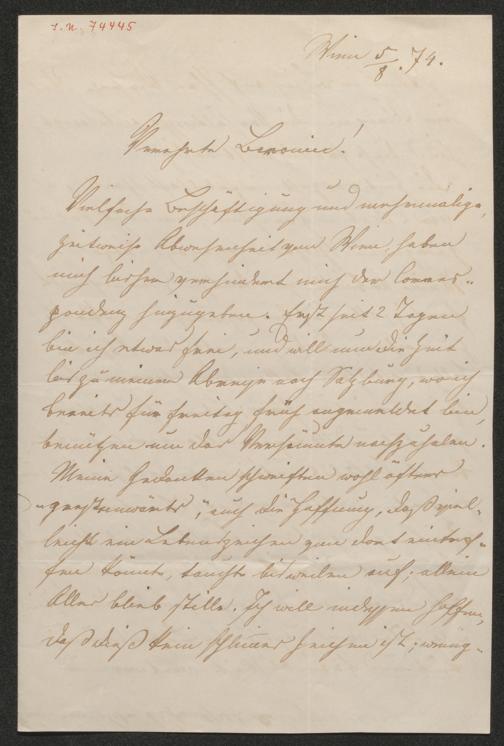 I. N. 74445
Wien 5/8. 74.
Verehrte Baronin!
Vielfache Beschäftigung und mehrmalige,
zeitweise Abwesenheit von Wien, haben
mich bisher verhindert mich der Corres-
pondenz hinzugeben. Erst seit 2 Tagen
bin ich etwas frei, und will nun die Zeit
bis zu meiner Abreise nach Salzburg, wo ich
bereits für Freitag früh angemeldet bin,
benützen um das Versäumte nachzuholen.
Meine Gedanken schweiften wohl öfters
auch die Hoffnung, daß viel-
leicht ein Lebenszeichen von dort eintref-
fen könnte, tauchte bisweilen auf; allein
Alles blieb stille. Ich will indessen hoffen,
daß dieß kein schlimmes Zeichen ist; wenig-